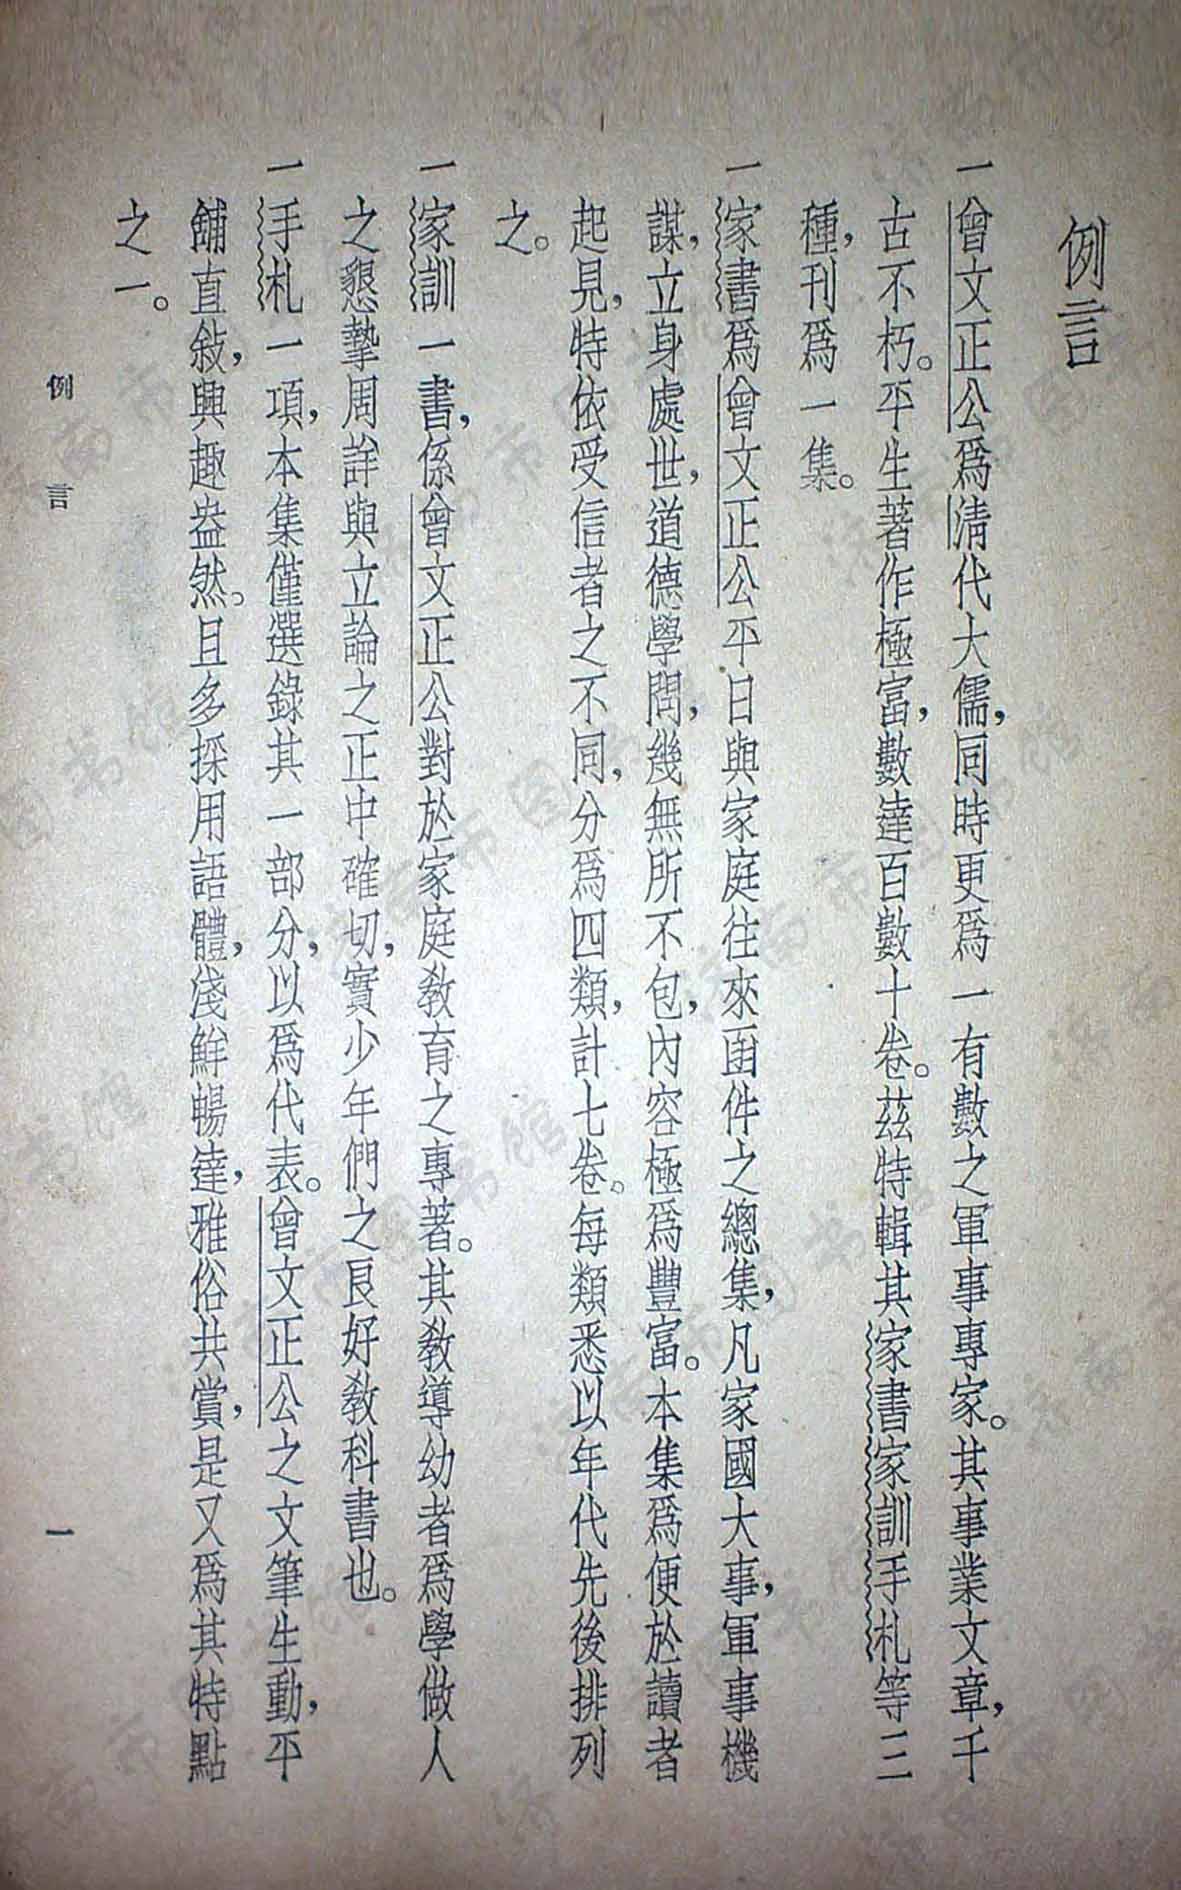 例言
一曾文正公爲清代大儒，同時更爲一有數之軍事專家。其事業文章，千
古不朽。平生著作極富，數達百數十卷。茲特輯其家書家訓手札等三
種，刊爲一集。
一家書爲曾文正公平日與家庭往來函件之總集，凡家國大事，軍事機
謀，立身處世，道德學問，幾無所不包，內容極爲豐富。本集爲便於讀者
起見，特依受信者之不同，分爲四類，計七卷。每類悉以年代先後排列
之。
一家訓一書，係曾文正公對於家庭敎育之專著。其敎導幼者爲學做人
之懇摯周詳與立論之正中確切，實少年們之良好敎科書也。
一手札一項，本集僅選錄其一部分，以爲代表。曾文正公之文筆生動，平
舖直敍，興趣盎然。且多採用語體，淺鮮暢達，雅俗共賞，是又爲其特點
之一。
例言
一
济南市图书馆